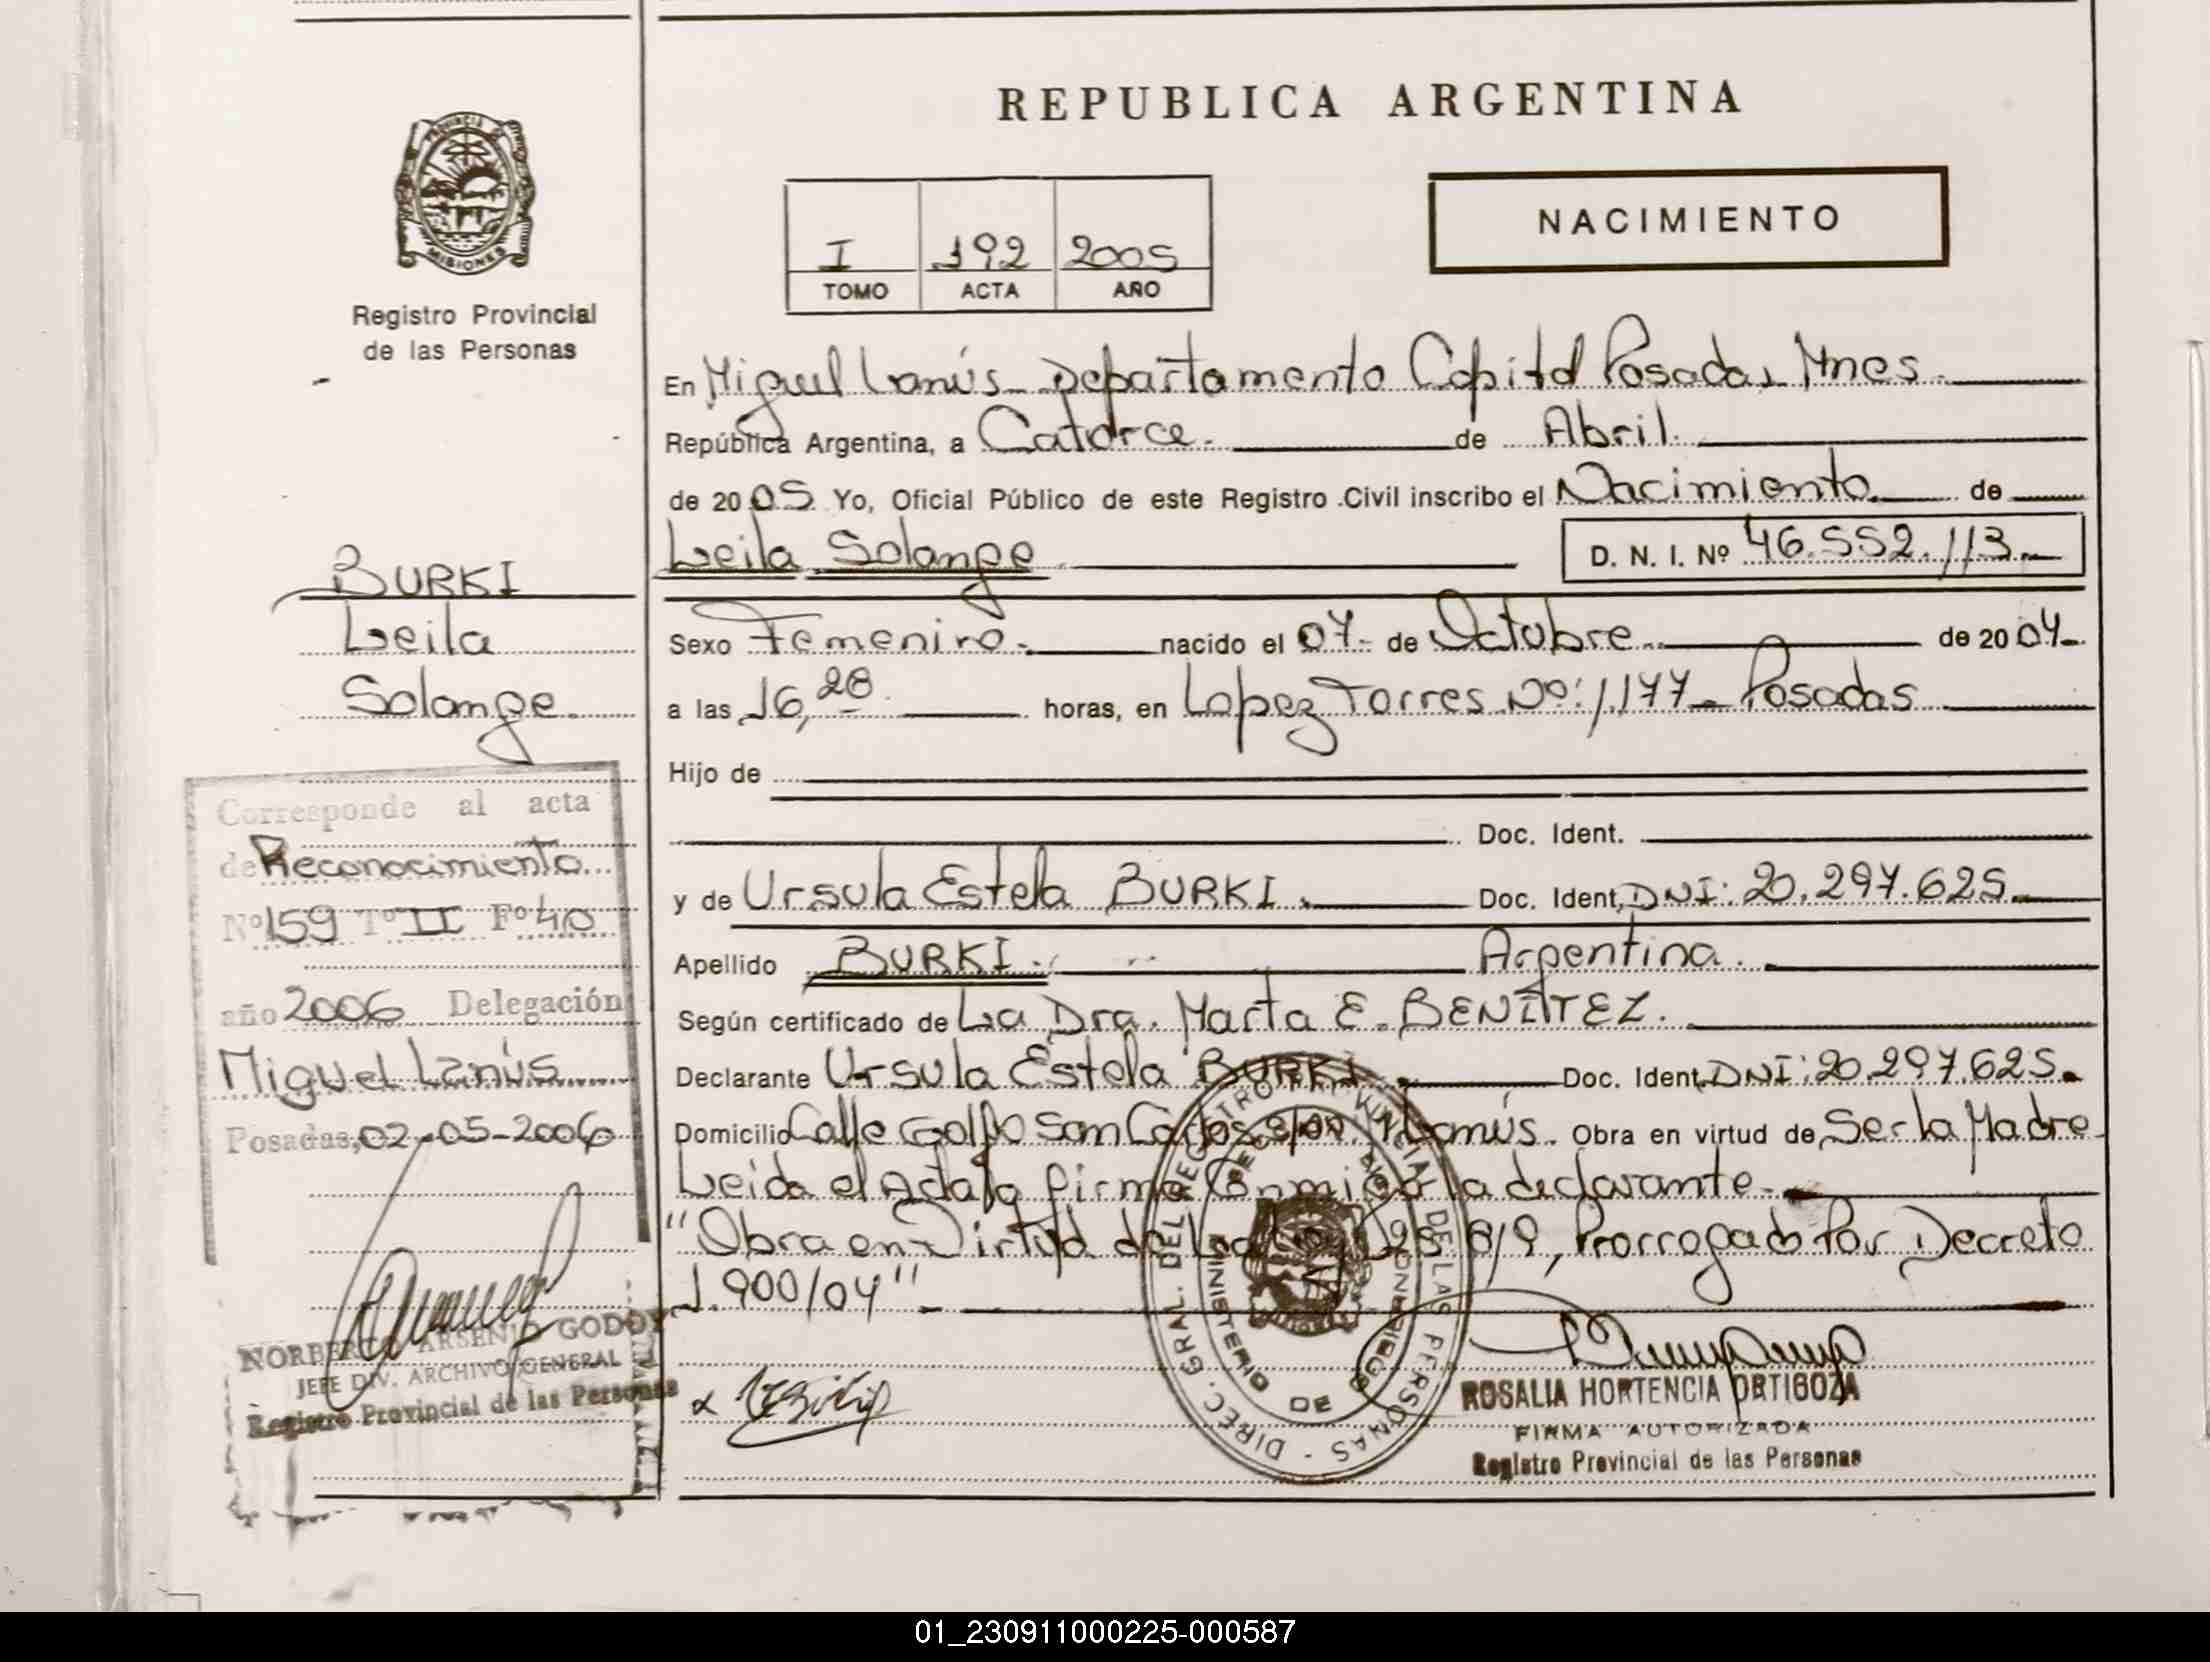 REPUBLICA ARGENTINA
PROVINCIA DE
MISIONES
Registro Provincial
de las Personas
I 192 2005
TOMO ACTA AÑO
NACIMIENTO
En Miguel Lanús Departamento Capital Posadas Mnes.
República Argentina, a Catorce. de Abril.
de 2005 Yo, Oficial Público de este Registro Civil inscribo el Nacimiento de
Leila Solange
D. N. I. Nº 46.552.113.
Sexo Femenino. nacido el 07 de Octubre de 2004
a las 16,28 horas, en Lopez Torres Nº: 1177 Posadas
Hijo de
Doc. Ident.
y de Ursula Estela BURKI. Doc. Ident. DNI: 20.297.625.
Apellido BURKI. Argentina.
Según certificado de La Dra. Marta E. BENITEZ.
Declarante Ursula Estela BURKI. Doc. Ident. DNI: 20.297.625.
Domicilio Calle Golfo San Carlos Lanús. Obra en virtud de Ser la Madre
Leida el Acta la firma Conmigo la declarante.
"Obra en Virtud de La Ley 25.819, Prorrogado Por Decreto
1.900/04"
BURKI
Leila
Solange.
Corresponde al acta
de Reconocimiento
Nº 159 Tº II Fº 40
año 2006 Delegación
Miguel Lanús
Posadas, 02-05-2006
NORBERTO ARSENIO GODOY
JEFE DIV. ARCHIVO GENERAL
Registro Provincial de las Personas
DIREC. GRAL. DEL REGISTRO PROVINCIAL DE LAS PERSONAS
MINISTERIO DE GOBIERNO
ROSALIA HORTENCIA ORTIGOZA
FIRMA AUTORIZADA
Registro Provincial de las Personas
01_230911000225-000587